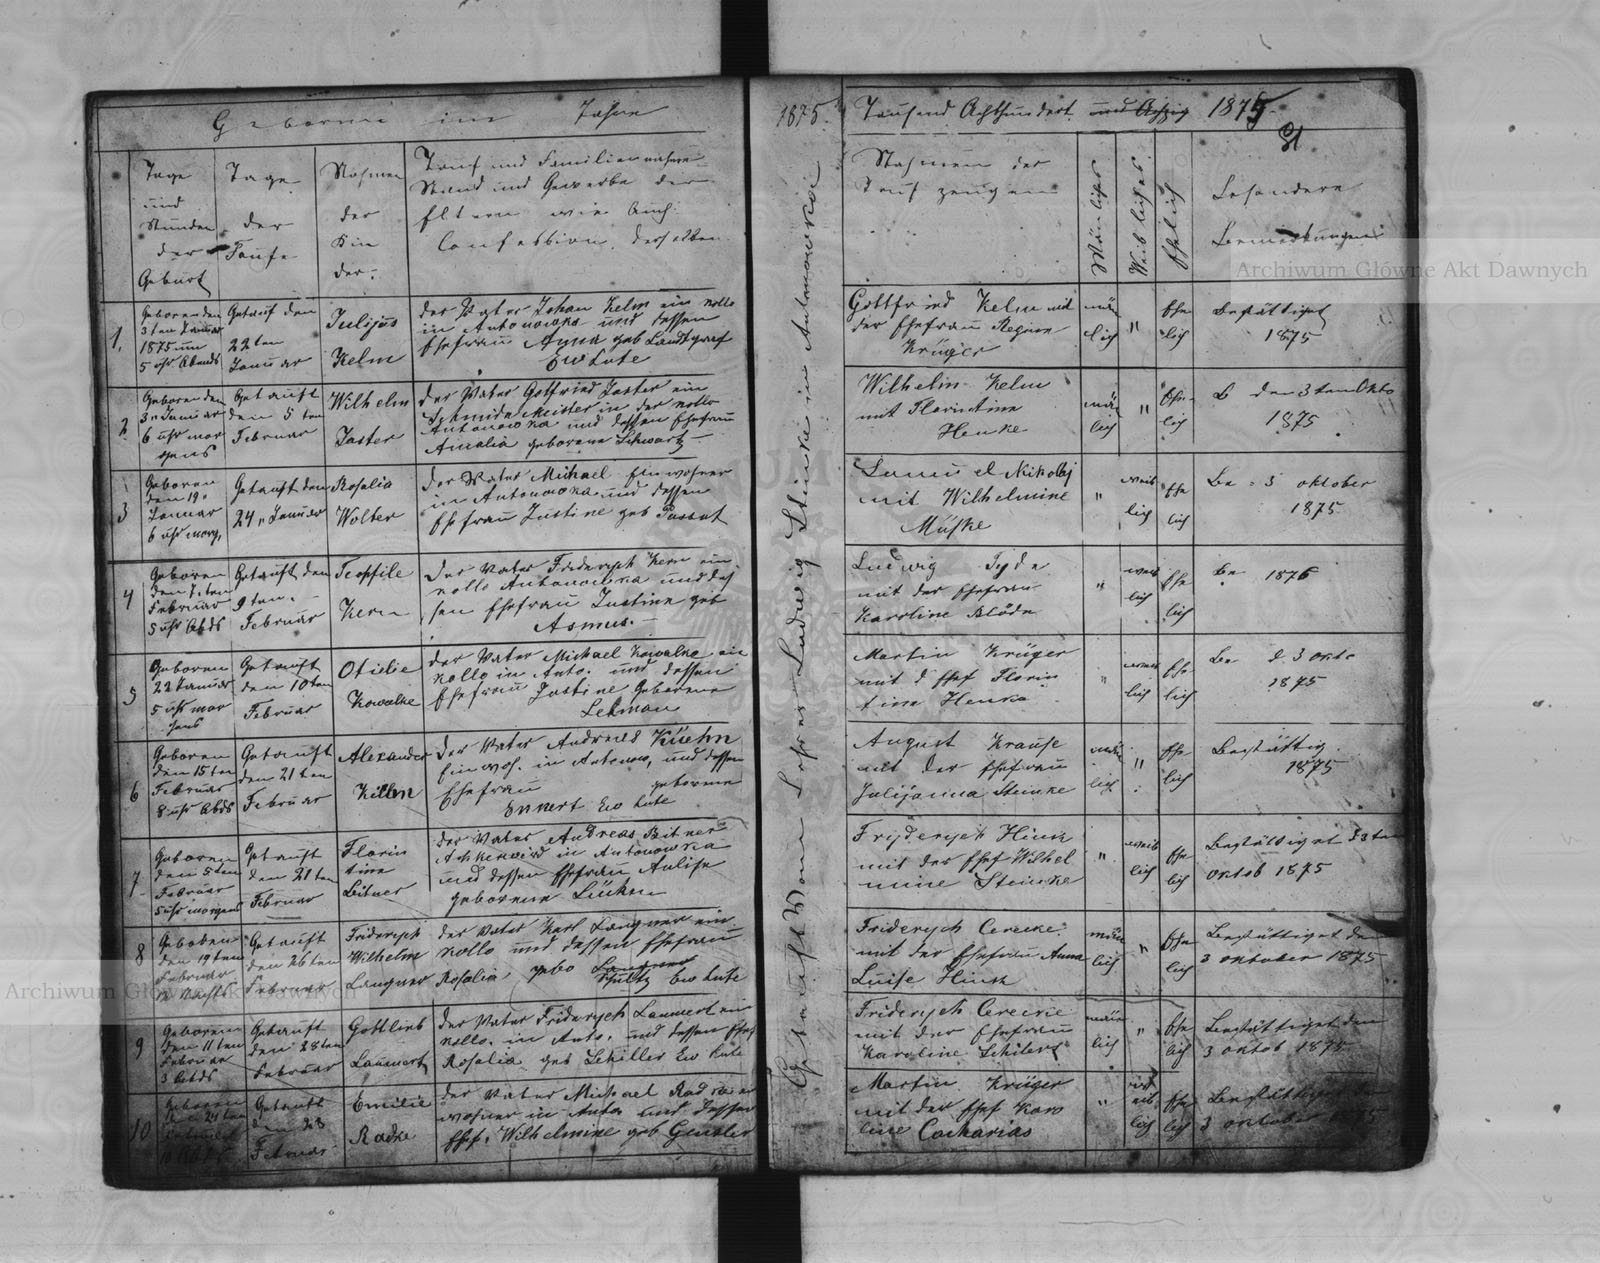 Geboren im Jahre
1875.
Tausend Achthundert und Achzig 1875
Tage
und
Stunden
der
Geburt
Tage
der
Taufe
Nahmen
der
Kin
der.
Tauf und Familiennahme
Stand und Gewerbe der
Eltern wie Auch
Confession derselben
Nahmen der
Tauf zeugen
Mänliches
Weibliches
Ehelich
Besondere
Bemerkungen
Archiwum Główne Akt Dawnych
1.
Geboren den
3ten Januar
1875 um
5 uhr Abends
Getauf den
22ten
Januar
Julijus
Kelm
der Vater Johan Kelm ein kollo
in Antonowka und dessen
Ehefrau Anna geb Landgraf
Ew Lute
Gottfried Kelm mit
der Ehefrau Regine
Krüger
män
lich
"
Ehe
lich
Bestättiget
1875
2
Geboren den
3 Januar
6 uhr mor
gens
Getauft
den 5 ten
Februar
Wilhelm
Jaster
der Vater Gottfried Jaster ein
Schmide Meister in der kollo
Antonowka und dessen Ehefrau
Amalia geborene Schwartz
Wilhelm Kelm
mit Florentine
Henke
män
lich
"
Ehe
lich
B den 3 ten Okto
1875
3
Geboren
den 19
Januar
6 uhr morg,
Getauft den
24 " Januar
Rosalia
Wolter
der Vater Michael Einwohner
in Antonowka und dessen
Ehefrau Justine geb
Samuel Nikolaj
mit Wilhelmine
Muske
"
weib
lich
Ehe
lich
Be : 3 oktober
1875
4
Geboren
den 7ten
Februar
5 uhr Abds
Getauft den
9 ten
Februar
Teoffile
Kern
der Vater Friderych Kern ein
kollo Antonowka und des
sen Ehefrau Justine geb
Asmus.
Ludwig
mit der Ehefrau
Karoline
"
weib
lich
Ehe
lich
Be 1876
5
Geboren
22 Januar
5 uhr mor
gens
Getauft
den 10 ten
Februar
Otidie
Kowalke
der Vater Michael Kowalke ein
kollo in Anto. und dessen
Ehefrau Justine Geborene
Lehman
Martin Krüger
mit d Ehef Floren
tine Henke
"
weib
lich
Ehe
lich
Be d. 3 okto
1875
6
Geboren
den 15 ten
Februar
8 uhr Abds
Getauft
den 21 ten
Februar
Alexander
der Vater Andreas Küehn
Einwoh. in Antonow, und dessen
Ehefrau geborene
Ennert Ew Lute
August Krause
mit der Ehefrau
Julijanna Steinke
män
lich
"
Ehe
lich
Bestättig
1875
7
Geboren
den 5 ten
Februar
5 uhr morgens
Getauft
den 21 ten
Februar
Floren
tine
Bitner
der Vater Andreas Bitner
Ackerwird in Antonowka
und dessen Ehefrau Aulise
geborene
Fryderych Hink
mit der Ehef Wilhel
mine Steinke
"
weib
lich
Ehe
lich
Bestättiget 3 ten
oktob 1875
8
Geboben
den 19 ten
Februar
Getauft
den 26 ten
Februar
Friderych
Wilhelm
Langner
der Vater Karl Langner ein
kollo und dessen Ehefrau
Rosalia gebo
Schultz Ew Lute
Friderych Cereike
mit der Ehefrau Anna
Luise Hink
män
lich
"
Ehe
lich
Bestättiget den
3 oktober 1875
Archiwum Główne Akt Dawnych
9
Geboren
den 11 ten
Februar
3 Abds
Getauft
den 28 ten
Februar
Gottlieb
Lanwert
der Vater Friderych Lanwert ein
kollo. in Anto. und dessen Ehef
Rosalia geb Schiller Ew Lute
Friderych Cereike
mit der Ehefrau
Karoline Schilert
män
lich
"
Ehe
lich
Bestättiget den
3 oktob 1875
10
Geboren
Getauft
den 28
Februar
Emilie
Radke
der Vater Michael Radke ein
wohner in Anto und dessen
Ehef. Wilhelmine geb Gensler
Martin Krüger
mit der Ehef Karo
line Cacharias
"
weib
lich
Ehe
lich
Bestättiget
3 oktober 1875
Getauft Vom Lehrer Ludwig Steinke in Antonowkai